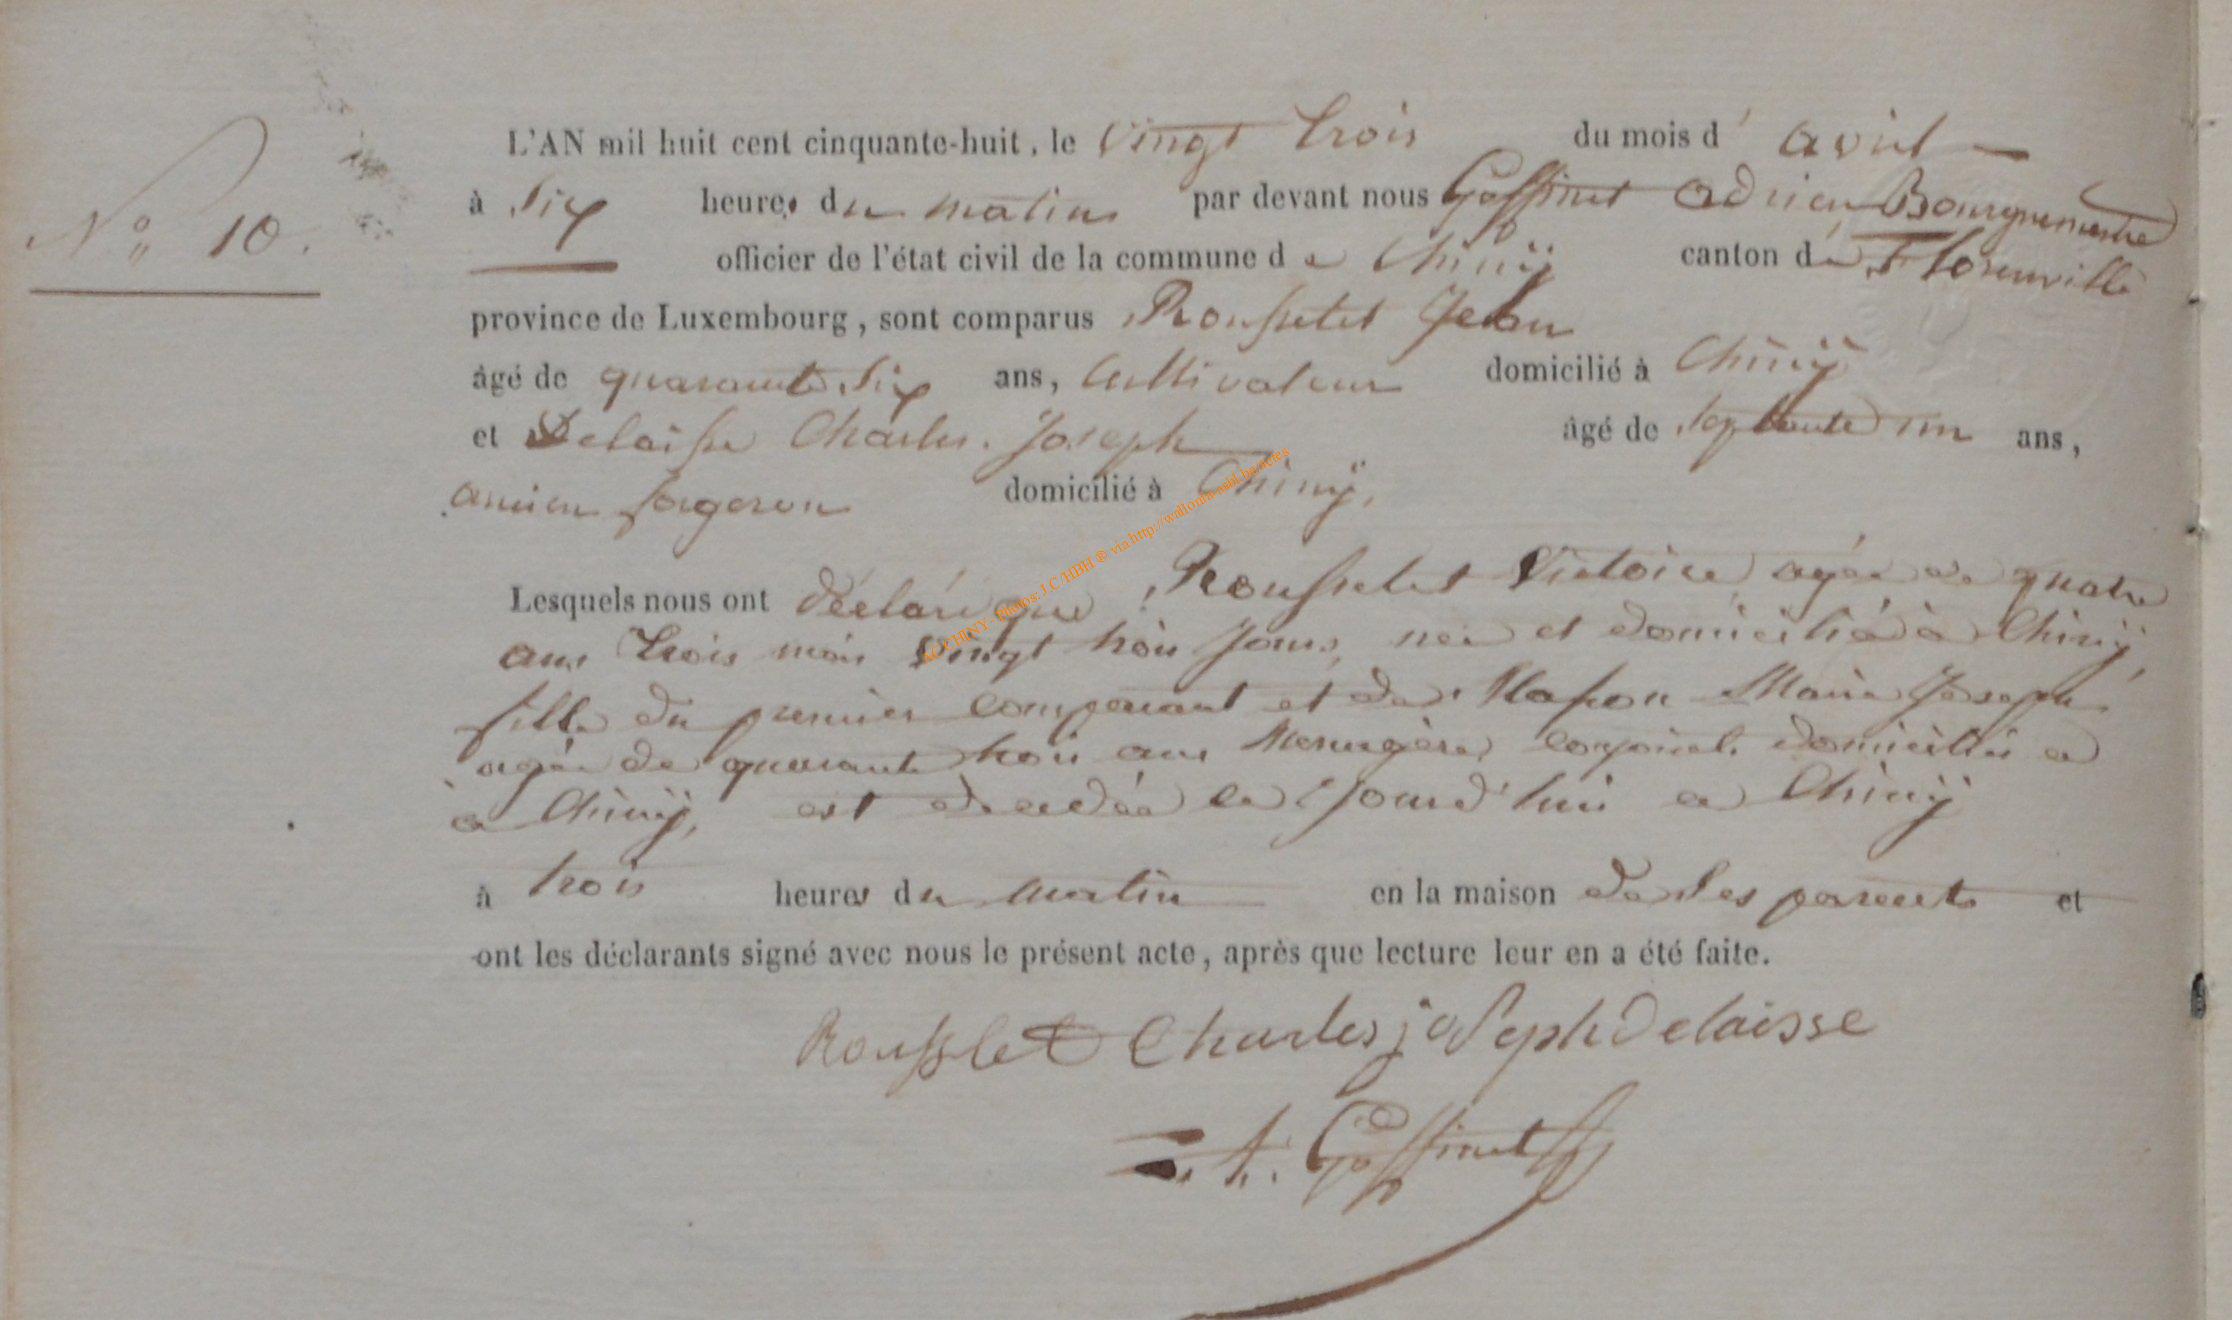 L'AN mil huit cent cinquante-huit, le vingt trois du mois d' avril
N° 10.
à six heures du matin par devant nous Goffinet Adrien Bourguemestre
officier de l'état civil de la commune de Chiny canton de Florenville
province de Luxembourg, sont comparus Rousselet Jean
âgé de quarante six ans, Cultivateur domicilié à Chiny
et Delaisse Charles Joseph âgé de septante un ans,
ancien forgeron domicilié à Chiny,
AC CHINY - Photos: J.C/HBH ® via http://wallonia-asbl.be/actes
Lesquels nous ont déclaré que Rousselet Victoire, agée de quatre
ans trois mois vingt trois jours, née et domiciliée à Chiny,
fille du premier comparant et de Marie Joseph
agée de quarante trois ans Menagère, conjoints domiciliés a
a Chiny, est decedée ce jourd'hui a Chiny
à trois heures du matin en la maison de ses parents et
ont les déclarants signé avec nous le présent acte, après que lecture leur en a été faite.
Rousslet Charles joseph Delaisse
A. Goffinet